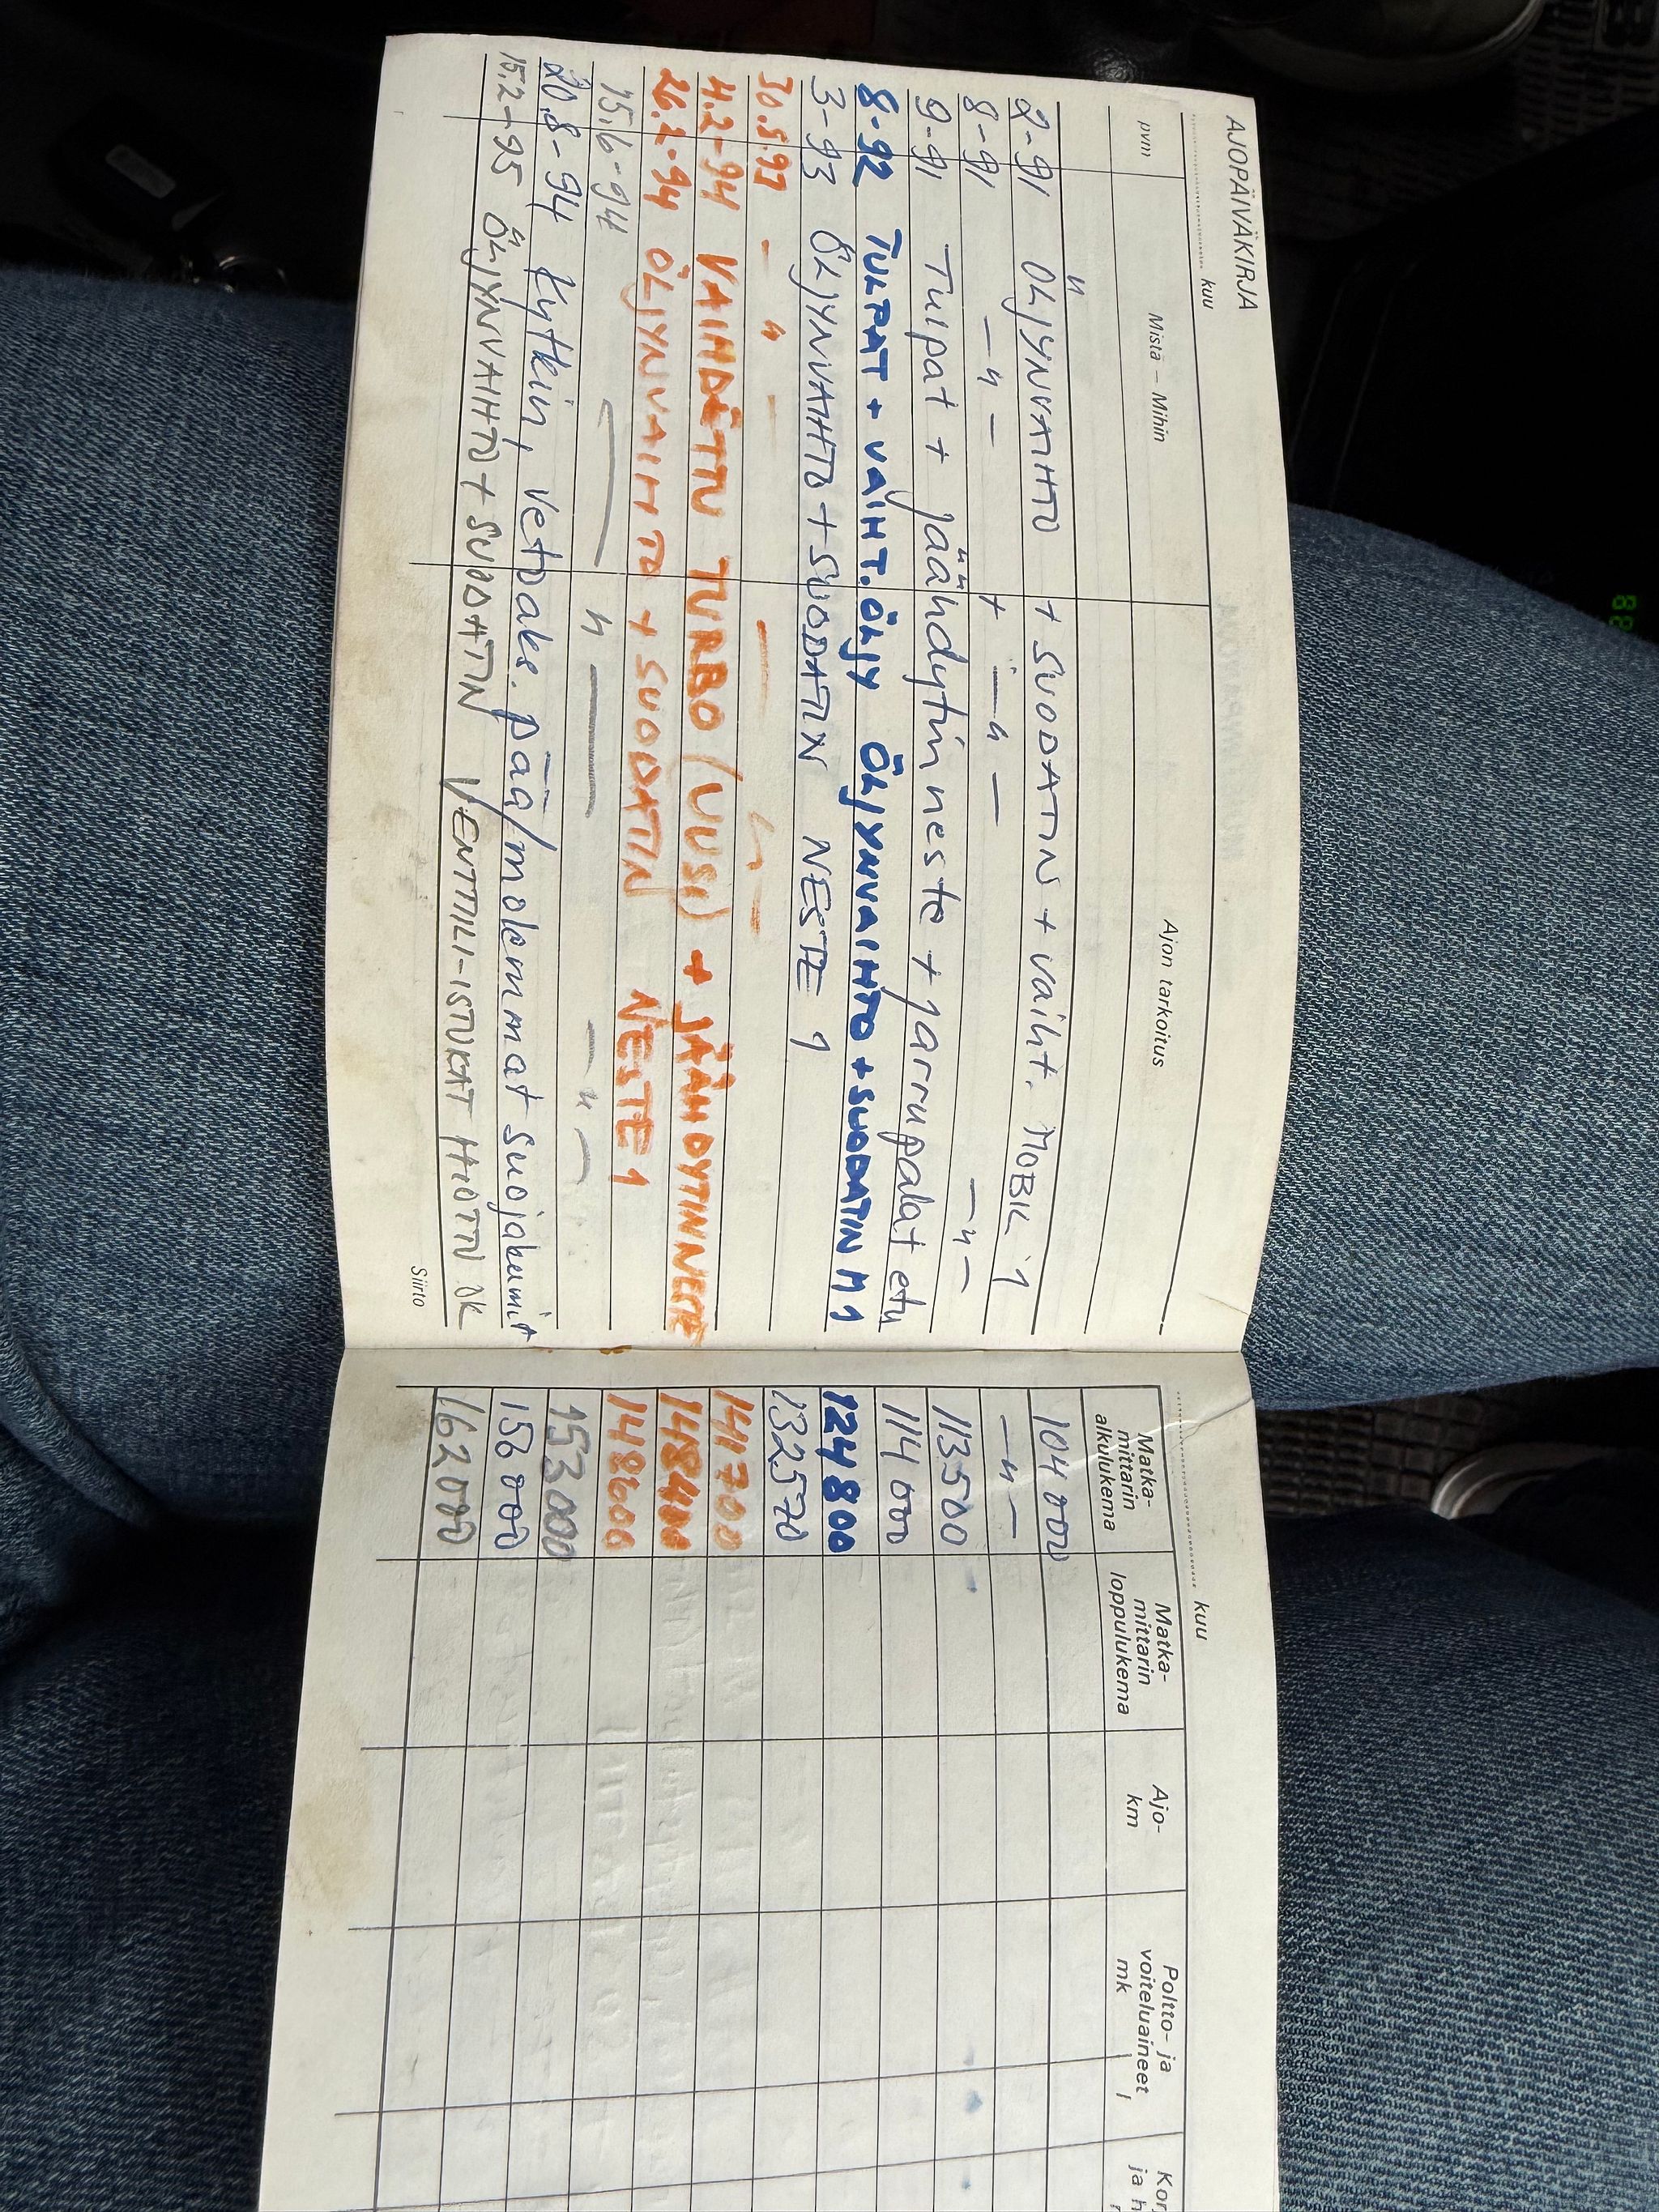 AJOPÄIVÄKIRJA
kuu kuu
pvm Mistä – Mihin Ajon tarkoitus Matka-mittarin alkulukema Matka-mittarin loppulukema Ajo-km Poltto- ja voiteluaineet mk l
2-91 ÖLJYNVAIHTO + SUODATIN + vaiht. MOBIL 1 104 000
8-91 — " — + — " — — " — — " —
9-91 Tulpat + jäähdytinneste + jarrupalat etu 113500
114 000
8-92 TULPAT + VAIHT. ÖLJY ÖLJYNVAIHTO + SUODATIN M1 124 800
3-93 ÖLJYNVAIHTO + SUODATIN NESTE 1 132570
30.9.93 — " — — " — 141700
4.2-94 VAIHDETTU TURBO (UUSI) + JÄÄHDYTINNESTE 148400
26.2-94 ÖLJYNVAIHTO + SUODATIN NESTE 1 148600
15.6-94 — " — — " — 153000
20.8-94 Kytkin, vetoaks. pää/molemmat suojakumit 156000
15.2-95 ÖLJYNVAIHTO + SUODATIN VENTTIILI-ISTUKAT HIOTTU OK 162000
Siirto